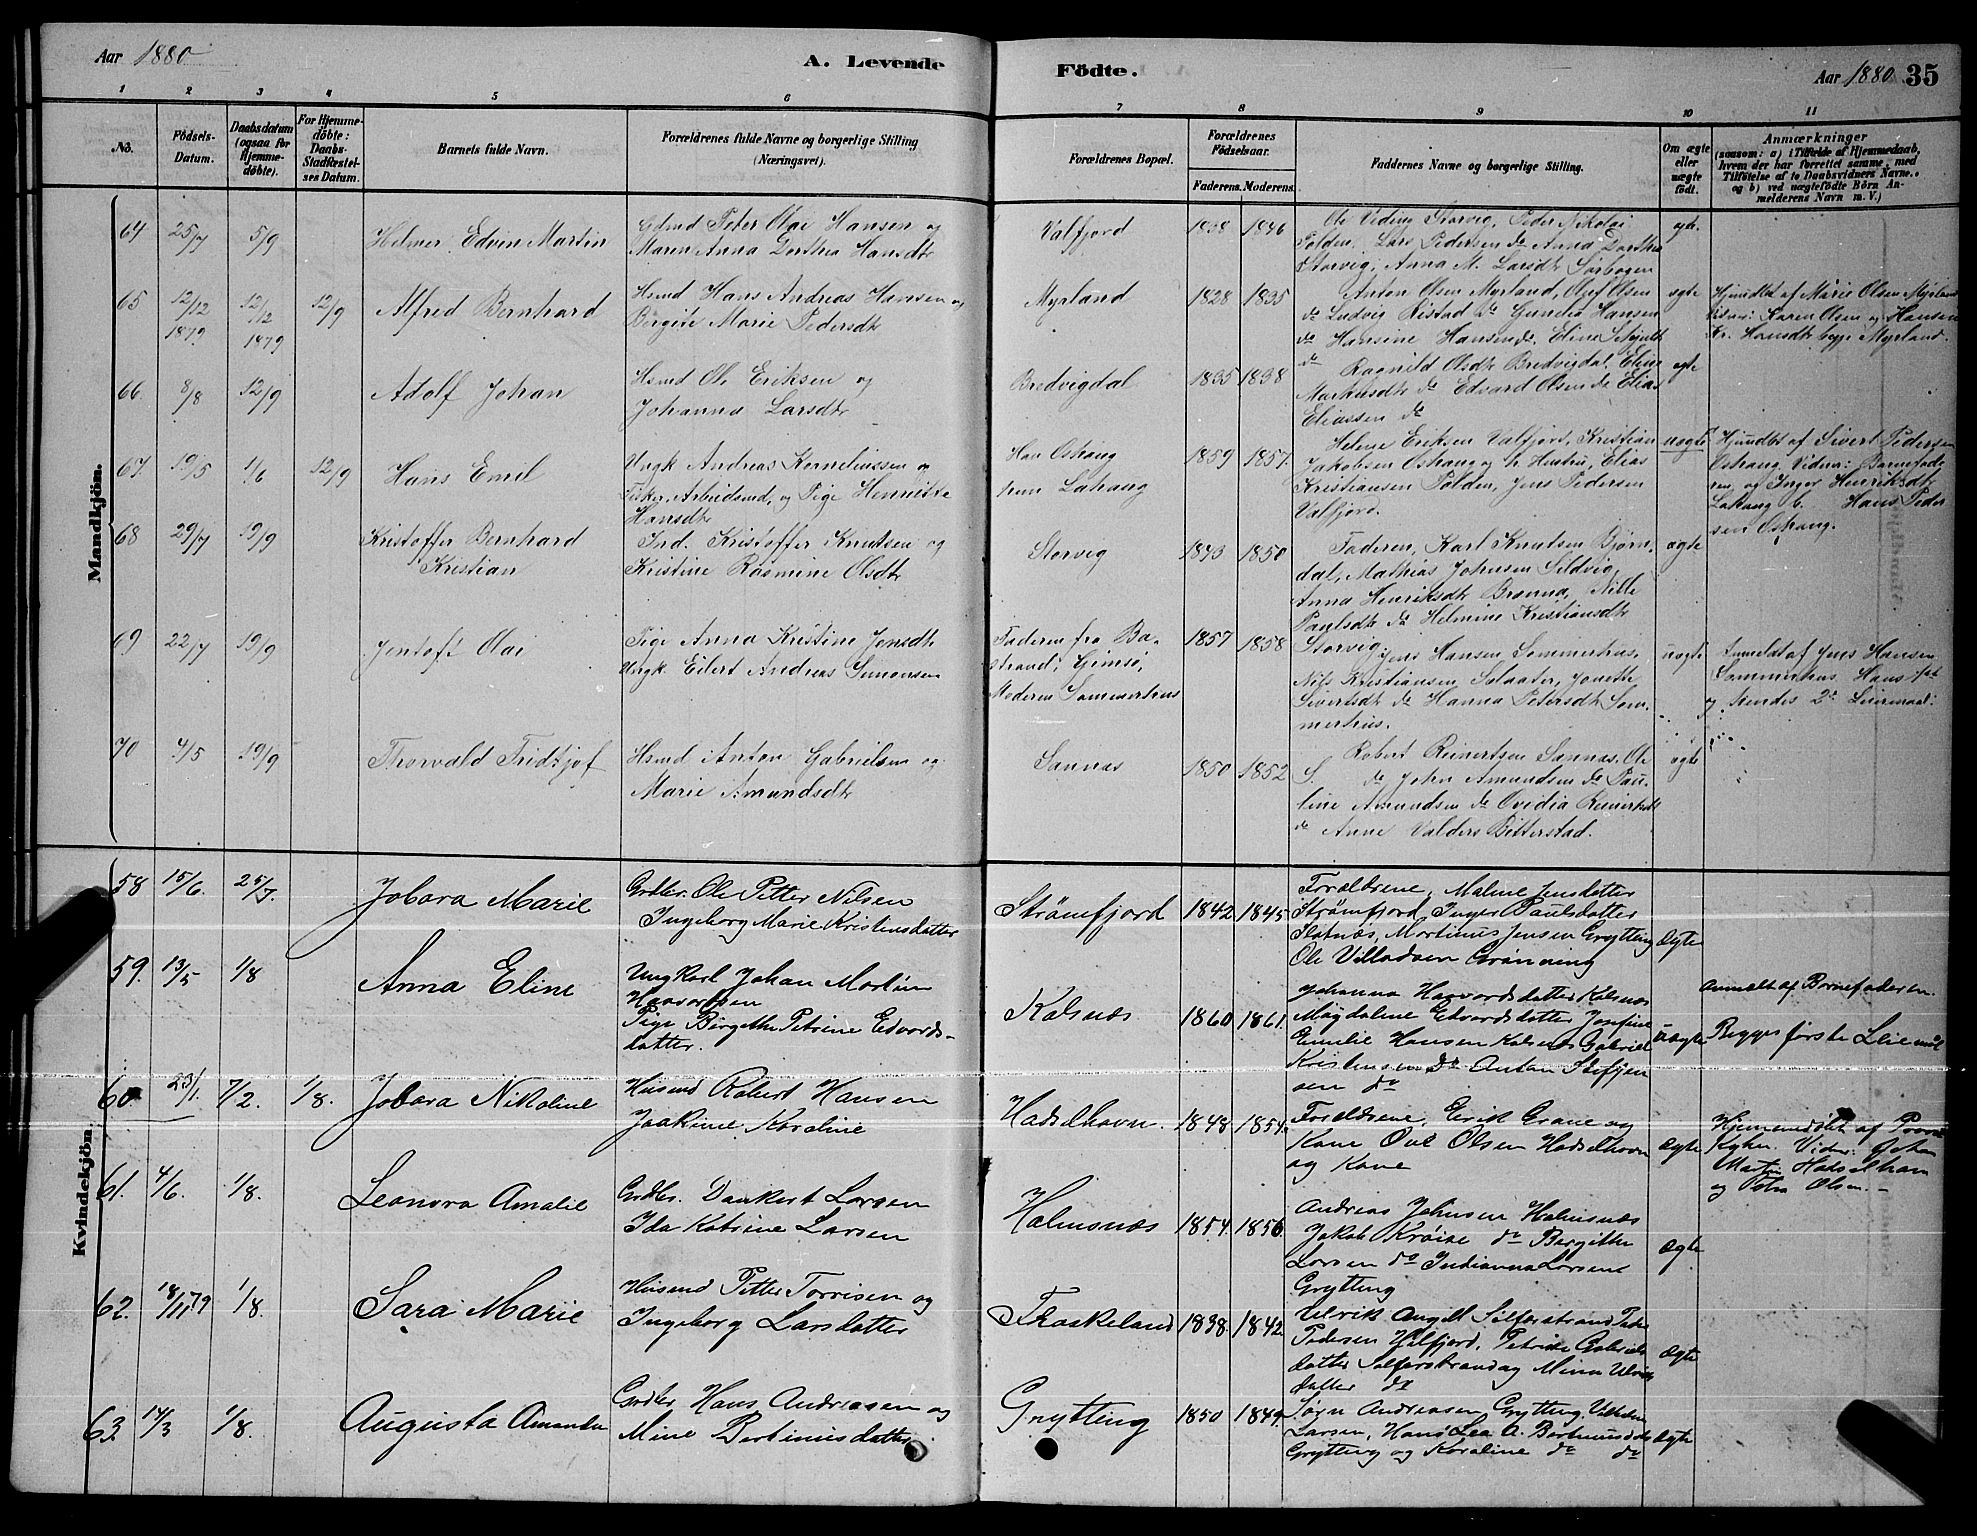 Aar 1880
A. Levende
Födte.
Aar 1880 35
1 2 3 4 5 6 7 8 9 10 11
No.
Födsels-
Datum.
Daabsdatum
(ogsaa for
Hjemme-
döbte).
For Hjemme-
döbte:
Daabs-
Stadfæstel-
ses Datum.
Barnets fulde Navn.
Forældrenes fulde Navne og borgerlige Stilling
(Næringsvei).
Forældrenes Bopæl.
Forældrenes
Födselsaar.
Faderens. Moderens.
Faddernes Navne og borgerlige Stilling.
Om ægte
eller
uægte
födt.
Anmærkninger
(saasom: a) i Tilfælde af Hjemmedaab,
hvem der har forrettet samme, med
Tilföielse af to Daabsvidners Navne.
og b) ved uægtefödte Börn An-
melderens Navn m. V.)
Mandkjön.
64 25/7 5/9
Helmer Edvin Martin
Gdmd Peter Olai Hansen og
Maren Anna Dorthea Hansdtr
Valfjord
1838 1846
Ole Viding Storvig, Peder Nikolai
Polden, Lars Pedersen do Anna Dorthea
Storvig, Anna M. Larsdtr Sørbogen
ægte
65 12/12 1879 12/12 1879 12/9
Alfred Bernhard
Hsmd Hans Andreas Hansen og
Birgite Marie Pedersdtr
Myrland
1828 1835
Anton Olsen Myrland, Oluf Olsen
do Ludvig Ristad do Gundia Hansen
do Hansine Hansen do. Eline
ægte
Hjmdbt af Marie Olsen Myrland
Vidner: Karen Olsen og Hansine
Kr. Hansdtr begge Myrland.
66. 8/8 12/9
Adolf Johan
Hsmd Ole Eriksen og
Johanna Larsdtr
Bredvigdal
1835 1838
do Ragnild Olsdtr Bredvigdal, Eline
Markusdtr do Edvard Olsen do Elias
Eliassen do
ægte
67. 19/5 1/6 12/9
Hans Emil
Ungk Andreas Kornelinssen og
Fisker, Arbeidsmd, og Pige Henritte
Hansdtr
Han Oshaug
hun Lahaug
1859 1857.
Helene Eriksen Valfjord, Kristian
Jakobsen Oshaug og h. Hustru, Elias
Kristiansen Polden, Jens Pedersen
Valfjord.
uægte
Hjmdbt af Sivert Pedersen
Oshaug. Vidner: Barnefade-
ren, og Inger Henriksdtr
Lahaug b. Hans Peder
sen Oshaug.
68 29/7 19/9
Kristoffer Bernhard
Kristian
Ind. Kristoffer Knutsen og
Kristine Rasmine Olsdtr
Storvig
1843 1850
Faderen, Karl Knutsen Bjørn-
dal, Mathias Johnsen Sildvig,
Anna Henriksdtr Brønna, Nille
Paulsdtr do Helmine Kristiansdtr
Storvig.
ægte
69 22/7 19/9
Jentoft Olai
Pige Anna Kristine Jensdtr
Ungk. Eilert Andreas Simonsen
Faderen fra Ba-
strand, Gimsø,
Moderen Sommerhus
1857 1858
Jens Hansen Sommerhus,
Nils Kristiansen Selaater, Jonette
Sivertsdtr do Hanna Petersdtr Som-
merhus.
uægte
Anmeldt af Jens Hansen
Sommerhus. Hans 1ste
og hendes 2det Leiermaal.
70 4/5 19/9
Thorvald Fridtjof
Hsmd Anton Gabrielsen og
Marie Amundsdtr
Sannæs
1850 1852
Robert Reinertsen Sannæs, Ole
S. do John Amundsen do Pau-
line Amundsen do Ovidia Reinertsdtr
do Anne Valders Bitterstad.
ægte
Kvindekjön.
58 15/6. 25/7.
Jobara Marie
Grdbr. Ole Pitter Nilsen
Ingeborg Marie Kristensdatter
Strømfjord
1842 1845
Forældrene, Maline Jensdatter
Strømfjord, Inger Paulsdatter
Flatnæs, Martinus Jensen Grytting
Ole Villadsen Grønning
Ægte
59. 13/5 1/8
Anna Eline
Ungkarl Johan Martin
Haavordsen
Pige Birgitte Petrine Edvards-
datter.
Kalsnæs
1860 1861.
Johanna Haavordsdatter Kalsnæs
Magdaline Edvardsdatter Josefine
Emelie Hansen Kalsnæs Gabriel
Kristensen do Anton Steffen
sen do
Uægte
Anmelt af Barnefaderen.
Begges første Leiemaal
60 23/1. 7/2. 1/8.
Jobara Nikoline
Husmd Robert Hansen
Joakime Karoline
Hadselhavn.
1848 1854.
Forældrene. Erik Grane og
Kone Ove Olsen Hadselhavn
og Kone
ægte
Hjemmedöbt af Provst
Kyhn. Vidner: Johan
Martin Hadselhavn
og Peter Olsen.
61. 4/6. 1/8.
Leonora Amalie
Grdbr. Dankert Larsen
Ida Katrine Larsen
Holmsnæs
1854. 1856
Andreas Johnsen Holmsnæs
Jakob Krøise do Bergitte
Larsen do Indianna Larsens
Grytting
Ægte
62. 18/11 79 1/8.
Sara Marie
Husmd Pitter Torrisen og
Ingeborg Larsdatter
Flaakeland
1838. 1842
Ulrik Angell Silferstrand Peder
Pedersen Valfjord. Petrikke Gabriels
datter Silferstrand og Mina Ulriks
datter do
Ægte
63. 14/3 1/8.
Augusta Amanda
Grdbr Hans Andreasen og
Mine Bertinusdatter
Grytting
1850 1849.
Sørn Andreasen Grytting. Vilhelm
Larsen, Hans Lea A. Bertinusdtr
Grytting og Karoline do do
Ægte